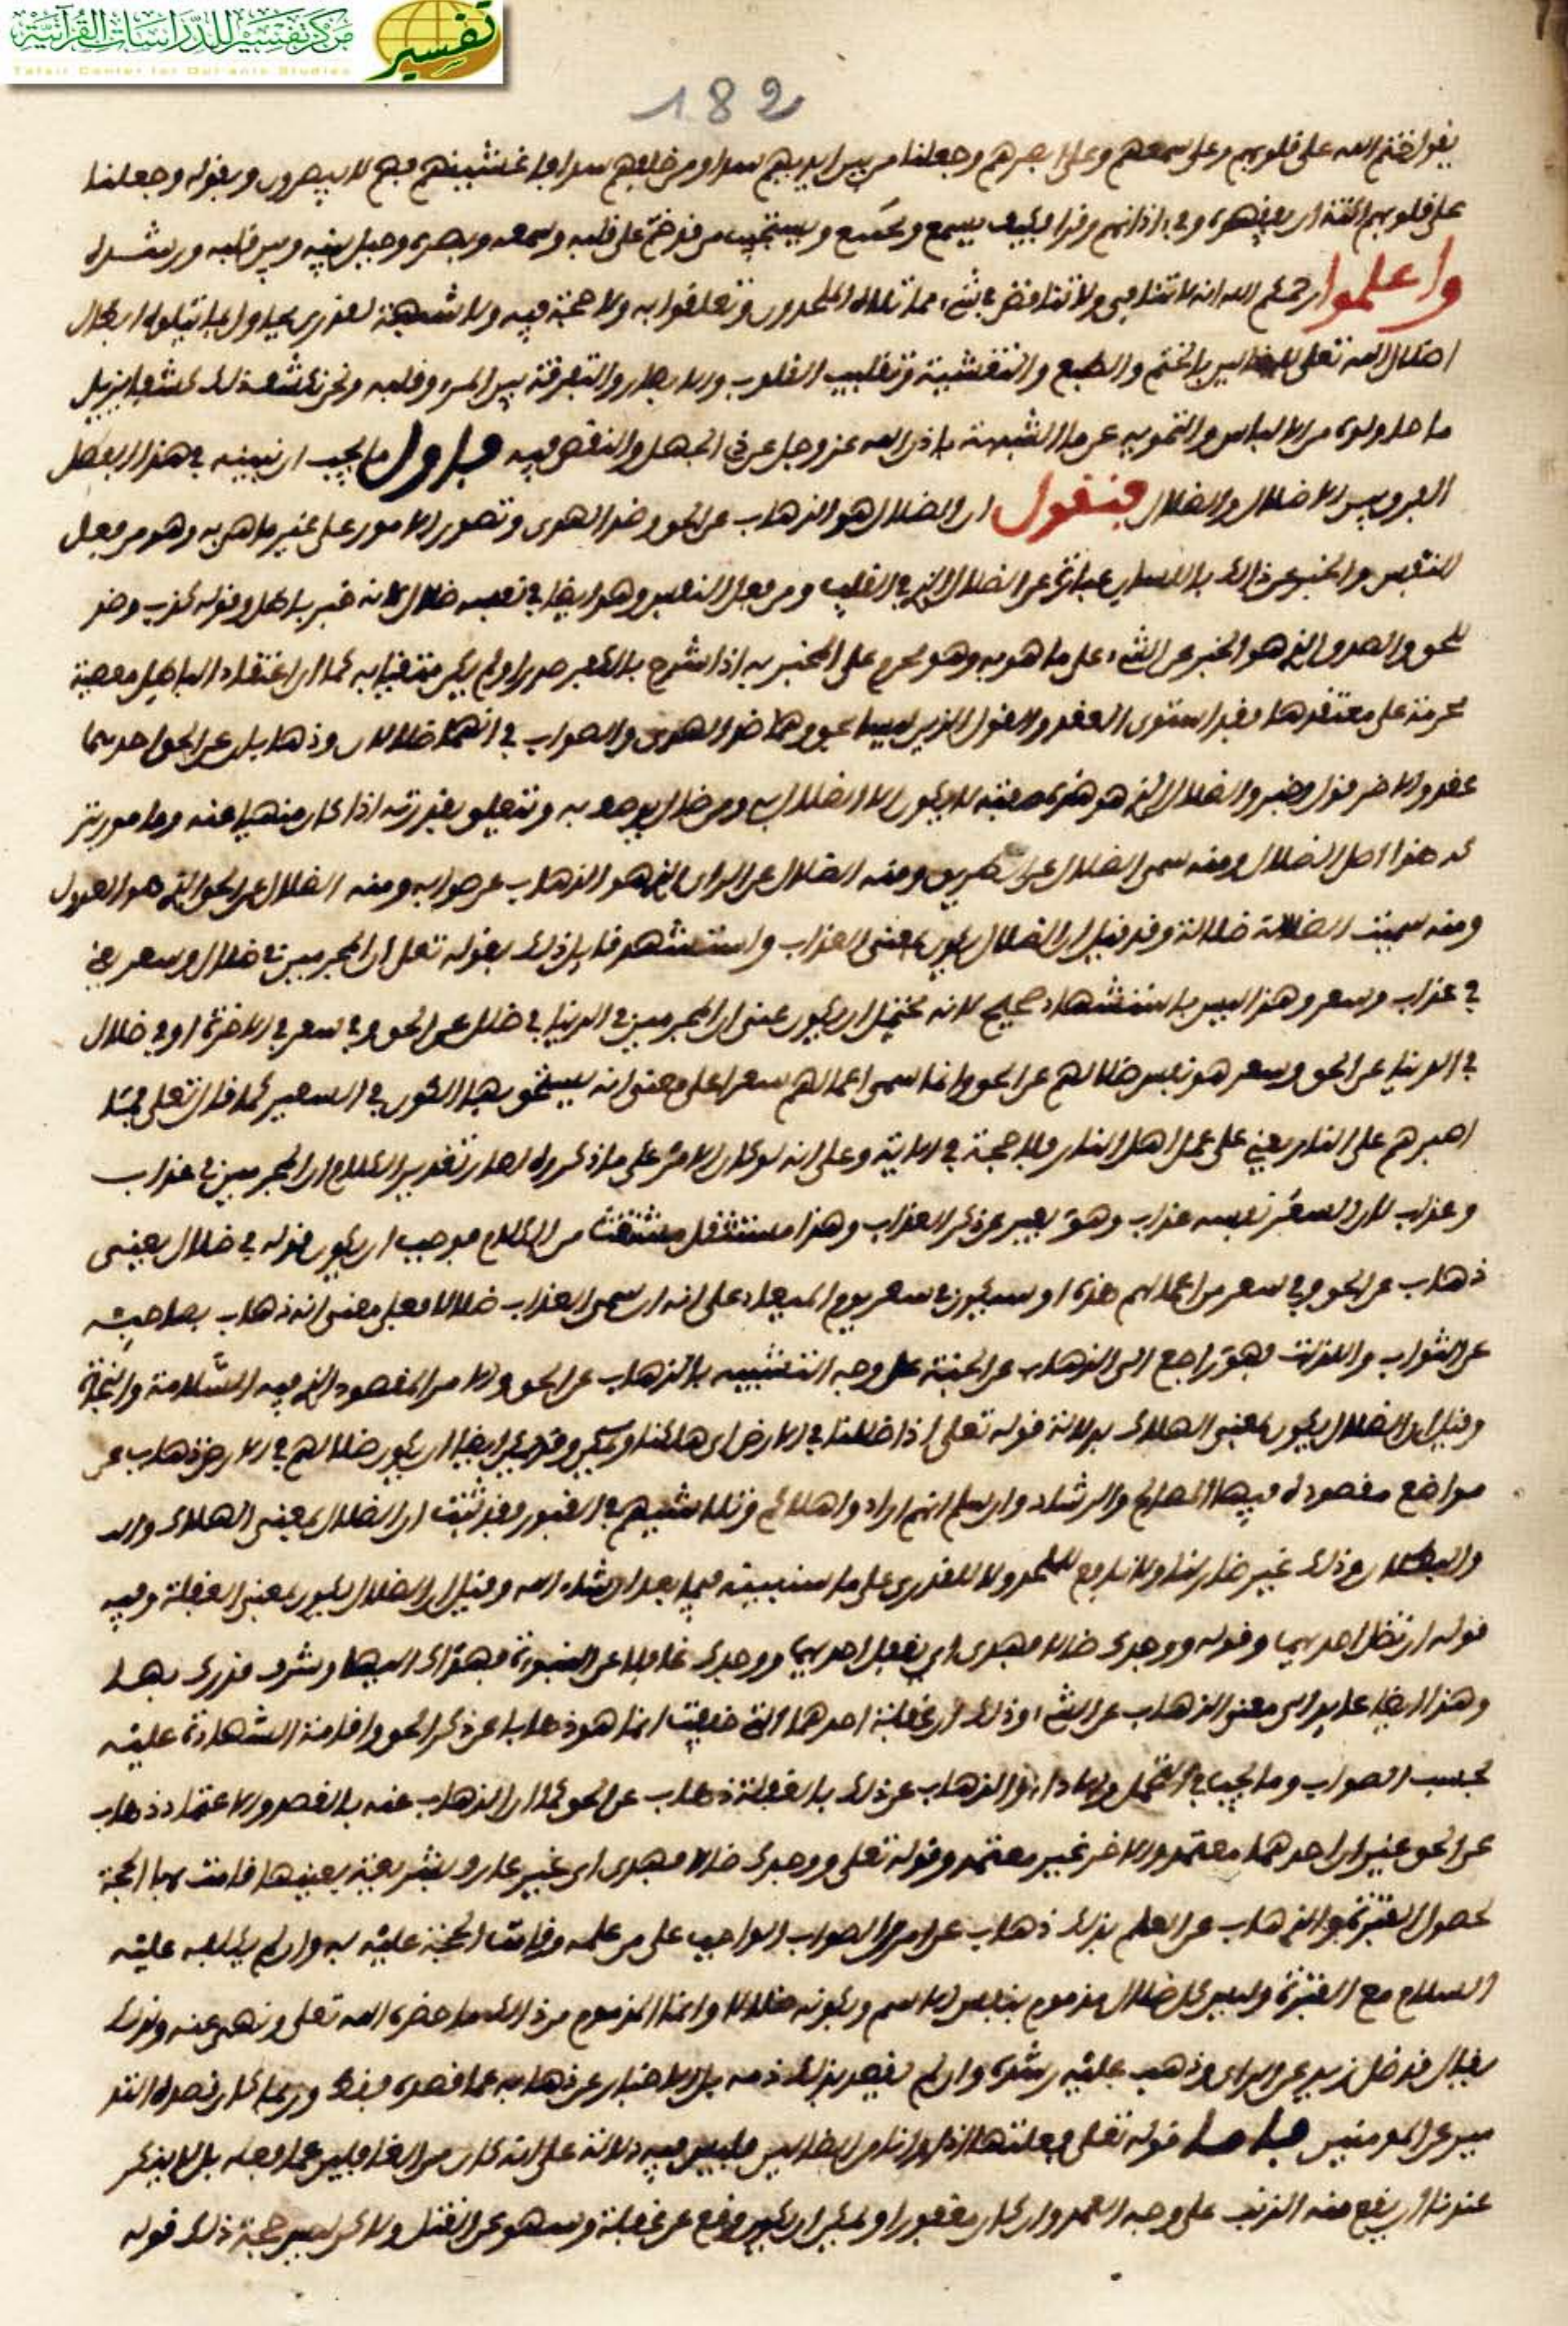 مركز تفسير للدراسات القرآنية
Tafsir Center for Qur'anic Studies
تفسير
182
يقول ختم الله على قلوبهم وعلى سمعهم وعلى ابصرهم وجعلنا من بين ايديهم سدا ومن خلفهم سدا فاغشينهم فهم لا يبصرون وبقوله وجعلنا
على قلوبهم اكنة ان يفقهوه وفي اذانهم وقرا فكيف يسمع ويستجيب من قد ختم على قلبه وسمعه وبصره وحيل بينه وبين قلبه ورشده
واعلموا رحمكم الله انه لا تنافي ولا تناقض في شيء مما تلاه الملحدون وتعلقوا به ولا حجة فيه ولا شبهة لقدري يحاول بما يتلوه ابطال
اضلال الله تعلى للضالين بالختم والطبع والتغشية وتقليب القلوب والابصار والتفرقة بين المرء وقلبه ونحن نكشف ذلك كشفا يزيل
ما حاولوه من الالباس والتمويه عن ما الشبهة باذن الله عز وجل عن ذي الجهل والنقص فيه فاول ما يجب ان نبينه في هذا الفصل
الفرق بين الاضلال والضلال فنقول ان الضلال هو الذهاب عن الحق وضد الهدى وتصور الامور على غير ما هي به وهو من فعل
النفس والخبر عن ذلك باللسان عبارة عن الضلال الذي في القلب ومن فعل النفس وهو ايضا في نفسه ضلال لانه خبر باطل وقوله كذب وضد
للحق والصدق الذي هو الخبر عن الشيء على ما هو به وهو محرم على المخبر به اذا شرح بالكفر صدرا ولم يكن متقيا به كما ان اعتقاد الباطل معصية
محرمة على معتقدها فقد استوى العقد والقول الذين ليسا بحق وهما ضد الهدى والصواب في انهما ضلالان وذهابان عن الحق احدهما
عقد والاخر قول وخبر والضلال الذي هو هذه صفته لا يكون الا الضلال به ومن ضل يوصف به وتتعلق بقدرته اذا كان منهيا عنه ومامور بتر
كه هذا اصل الضلال ومنه سمى الضلال عن الطريق ومنه الضلال عن الراي الذي هو الذهاب عن صوابه ومنه الضلال عن الحق الذي هو العدول
ومنه سميت الضلالة ضلالة وقد قيل ان الضلال يكون بمعنى العذاب واستشهد قايل ذلك بقوله تعلى ان المجرمين في ضلال وسعر يعني
في عذاب وسعر وهذا ليس باستشهاد صحيح لانه يحتمل ان يكون عنى ان المجرمين في الدنيا في ضلال عن الحق وفي سعر في الاخرة او في ضلال
في الدنيا عن الحق وسعر هو نفس ضلالهم عن الحق وانما سمى اعمالهم سعرا على معنى انه يستحق بها الكون في السعير كما قال تعلى فما
اصبرهم على النار يعني على عمل اهل النار فلا حجة في الاية وعلى انه لو كان الامر على ما ذكروه لصار تقدير الكلام ان المجرمين في عذاب
وعذاب لان السعر نفسه عذاب وهو يعبر عن ذكر العذاب وهذا مستثقل من الكلام فوجب ان يكون قوله في ضلال يعني
ذهاب عن الحق وفي سعر من اعمالهم هذه او سيكون في سعر يوم الميعاد على انه ان سمى العذاب ضلالا فعلى معنى انه ذهاب بصاحبه
عن الثواب واللذات فهو راجع الى الذهاب عن الجنة على وجه التشبيه بالذهاب عن الحق والامر المقصود الذي فيه السلامة والنجاة
وقيل ان الضلال يكون بمعنى الهلاك بدلالة قوله تعلى اذا ضللنا في الارض اي هلكنا وقد يمكن ايضا ان يكون ضلالهم في الارض ذهاب عن
مواضع مقصودة فيها الصلاح والرشاد وان سلم انهم ارادوا هلاكهم وتلاشيهم في القبور فقد ثبت ان الضلال بمعنى الهلاك والد
والبطلان وذلك غير ضار لنا ولا نافع للملحد ولا للقدري على ما سنبينه فيما بعد ان شاء الله وقيل ان الضلال يكون بمعنى الغفلة وفيه
قوله ان تضل احديهما وقوله ووجدك ضالا فهدى اي تغفل احديهما ووجدك غافلا عن النبوة فهداك اليها وشرف قدرك بها
وهذا ايضا عايد الى معنى الذهاب عن الشيء وذلك ان غفلة احدهما انما هو ذهاب عن ذكر الحق واقامة الشهادة عليه
بحسب الصواب وما يجب في التحمل والاداء والذهاب عن ذلك بالغفلة ذهاب عن الحق كما ان الذهاب عنه بالقصد والاعتماد ذهاب
عن الحق غير ان احدهما معتمد والاخر غير معتمد وقوله تعلى ووجدك ضالا فهدى اي غير عارف بشريعة بعينها قامت بها الحجة
لحصول الفترة والذهاب عن العلم بذلك ذهاب عن امر الصواب الواجب على من علمه وقامت الحجة عليه به وان لم يكلفه عليه
السلام مع الفترة وليس كل ضلال مذموم بنفس الاسم وبكونه ضلالا وانما المذموم من ذلك ما حضره الله تعلى ونهى عنه ولذلك
يقال قد ضل زيد عن الراي وذهب عليه رشده وان لم يقصد بذلك ذمه بل الاخبار عن ذهابه عما قصده فقط وربما كان قصده التد
مير عن المومنين فاما قوله تعلى فعلتها اذا وانا من الضالين فليس فيه دلالة على انه كان من الغافلين عما فعله بل لا ينكر
عندنا ان يقع منه الذنب على وجه العمد وان كان مغفورا ويمكن ان يكون وقع عن غفلة وسهو عن القتل ولا كن ليس حجة ذلك قوله